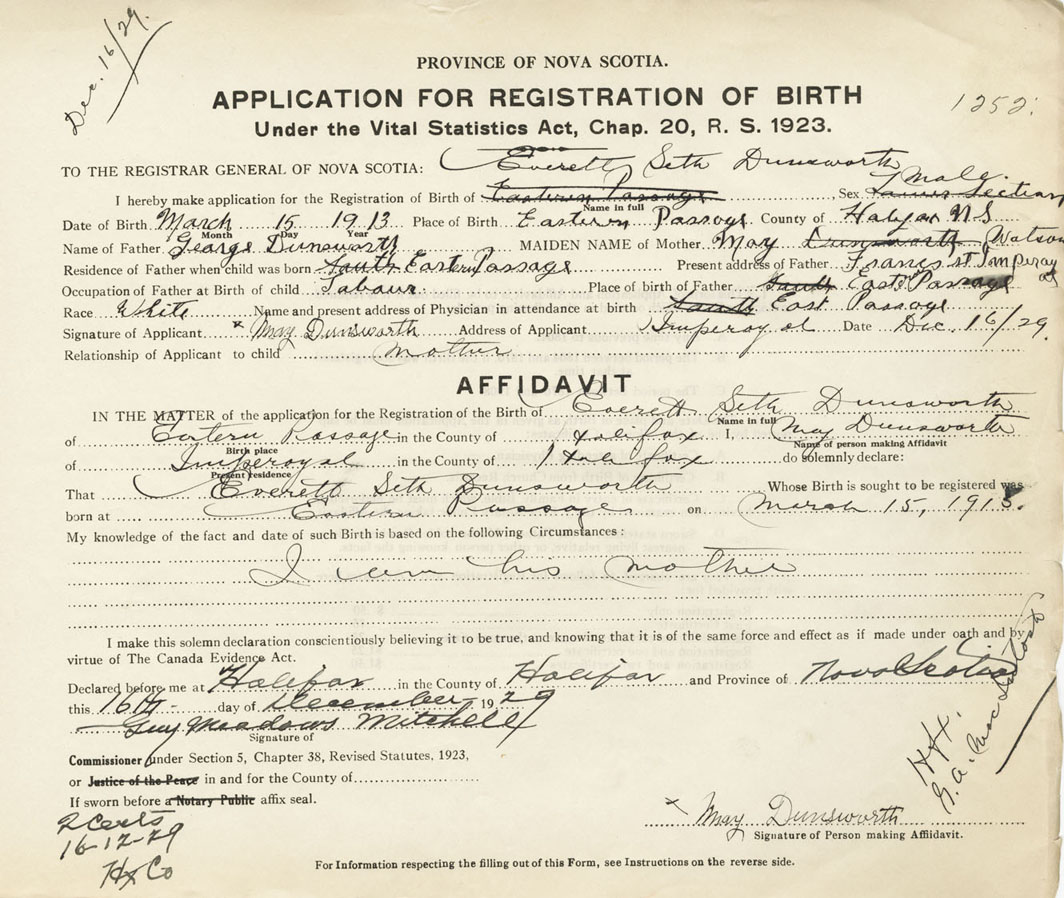 Dec. 16/29
PROVINCE OF NOVA SCOTIA.
APPLICATION FOR REGISTRATION OF BIRTH
1252.
Under the Vital Statistics Act, Chap. 20, R. S. 1923.
TO THE REGISTRAR GENERAL OF NOVA SCOTIA: Everett Seth Dunsworth
Male.
I hereby make application for the Registration of Birth of Eastern Passage, Sex
Name in full
Date of Birth March 15 1913 Place of Birth Eastern Passage County of Halifax N S
Month Day Year
Name of Father George Dunsworth MAIDEN NAME of Mother May Dunsworth Watson
Residence of Father when child was born South Eastern Passage Present address of Father Francis st Imperoyal
Occupation of Father at Birth of child Labour. Place of birth of Father South East Passage
Race White Name and present address of Physician in attendance at birth South East Passage
Signature of Applicant x May Dunsworth Address of Applicant Imperoyal Date Dec. 16/29.
Relationship of Applicant to child mother
AFFIDAVIT
IN THE MATTER of the application for the Registration of the Birth of Everett Seth Dunsworth
Name in full
of Eatern Passage in the County of Halifax I, May Dunsworth
Birth place Name of person making Affidavit
of Imperoyal in the County of Halifax do solemnly declare:
Present residence
That Everett Seth Dunsworth Whose Birth is sought to be registered was
born at Eastern Passage on March 15, 1913.
My knowledge of the fact and date of such Birth is based on the following Circumstances:
I am his mother
I make this solemn declaration conscientiously believing it to be true, and knowing that it is of the same force and effect as if made under oath and by
virtue of The Canada Evidence Act.
Declared before me at Halifax in the County of Halifax and Province of Nova Scotia
this 16th day of December 1929
Guy Meadows Mitchell
Signature of
Commissioner under Section 5, Chapter 38, Revised Statutes, 1923,
or Justice of the Peace in and for the County of
If sworn before a Notary Public affix seal.
2 Certs
16-12-29
Hx Co
Hfx.
x May Dunsworth
Signature of Person making Affidavit.
For Information respecting the filling out of this Form, see Instructions on the reverse side.